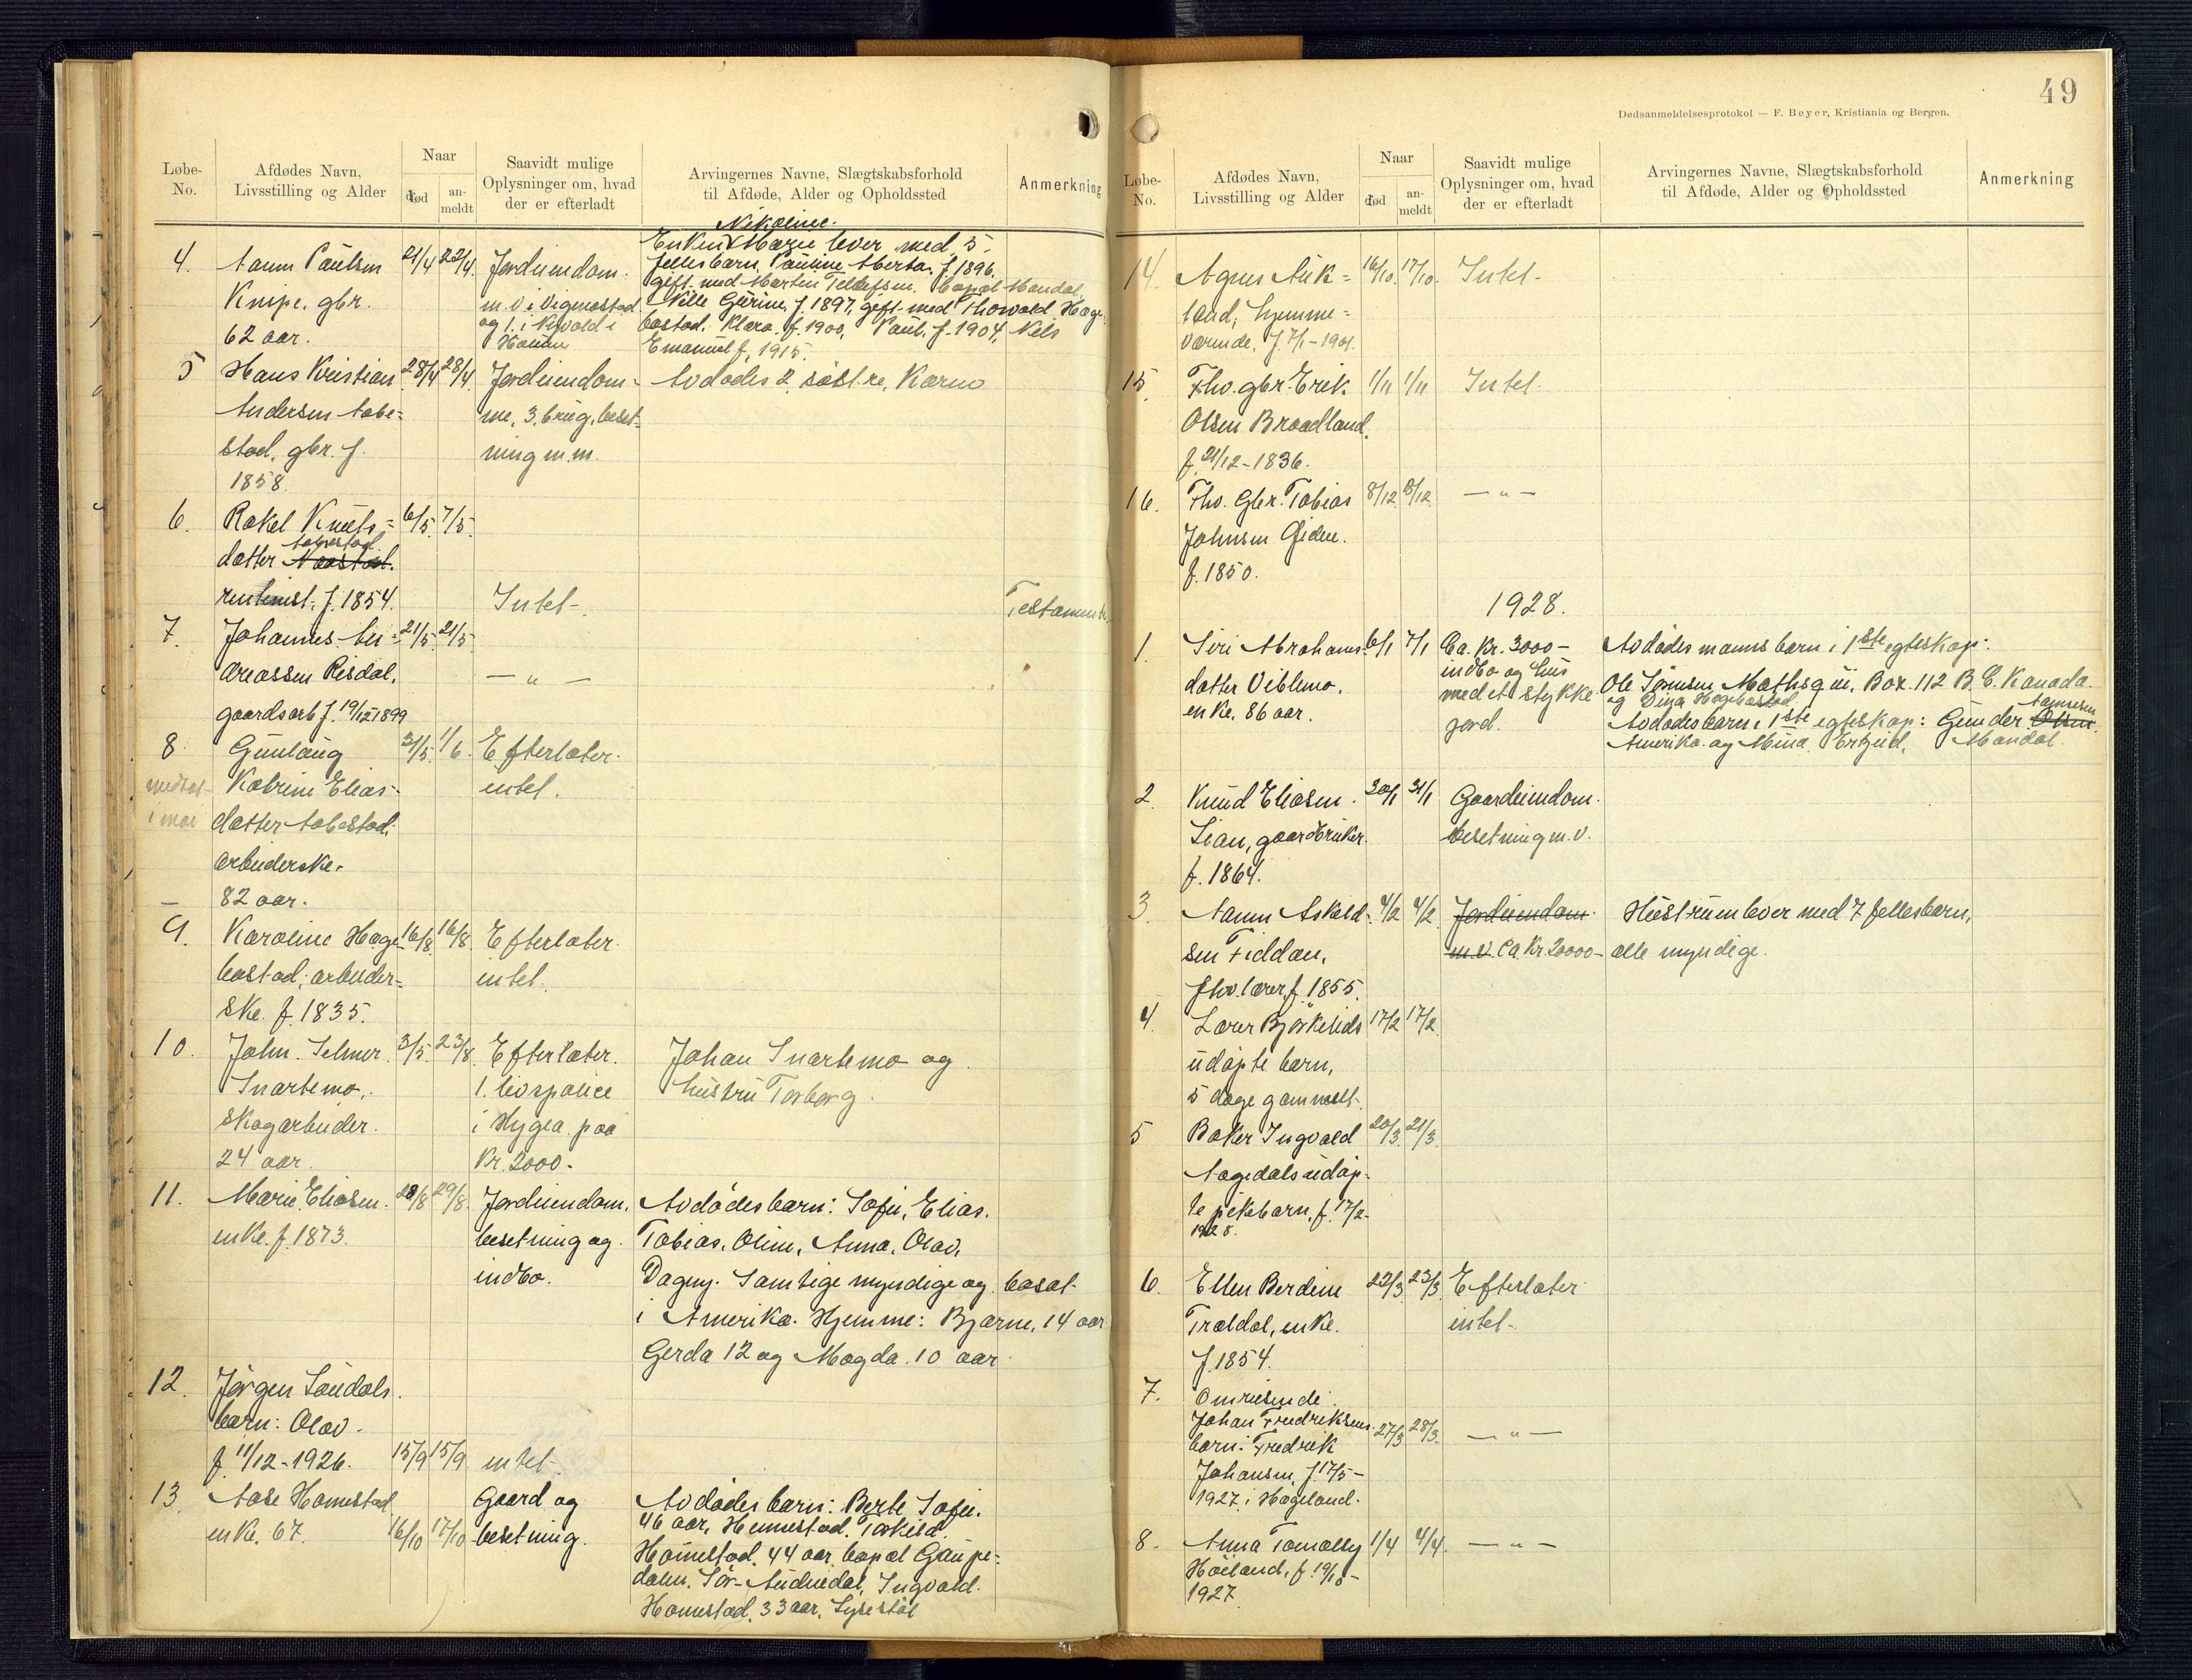 49
Dødsanmeldelsesprotokol — F. Beyer, Kristiania og Bergen.
Løbe-No.
Afdødes Navn, Livsstilling og Alder
Naar
død
an-meldt
Saavidt mulige Oplysninger om, hvad der er efterladt
Arvingernes Navne, Slægtskabsforhold til Afdøde, Alder og Opholdssted
Anmerkning
4. Aanen Paulsen 21/4 22/4 Jordeiendom
Knipe, gbr.
62 aar.
m.v. i Vigmostad
og 1. i
Nikoline
Enken Marie lever med 5
fellesbarn, Pauline Aberta, f. 1896,
gift med Marten Tellefsen, bopæl Mandal,
Nille Gurine, f. 1897, gift med Thorvald Hæge-
bostad, Klara, f. 1900, Paul, f. 1904, Nils
Emanuel f. 1915.
5 Hans Kristian 28/4 28/4 Jordeiendom- Avdødes 2 søstre, Karen
Andersen Aabe- me, 3 brug, beset-
stad, gbr. f. ning m.m.
1858.
6. Rakel Knuts- 6/5 7/5
Aabestad
datter
rentenist. f. 1854. Intet- Testamente.
7. Johannes An- 21/5 21/5
dreassen Risdal, — " —
gaardsarb. f. 19/12 1899
8. Gunlaug 31/5 1/6 Efterlater
medtat Katrine Elias- intet.
i mai datter Aabestad,
arbeiderske.
— 82 aar.
9. Karoline Hæge- 16/8 16/8 Efterlater
bostad, arbeider- intet.
ske. f. 1835.
10. John Selmer 3/5 23/8 Efterlater Johan Snartemo og
Snartemo, 1 livspolice hustru Torborg.
skogarbeider. i Hygea paa
24 aar. Kr. 2000-
11. Marie Eliasen 28/8 29/8 Jordeiendom, Avdødes barn: Sofie, Elias,
enke. f. 1873. besetning og Tobias, Oline, Anna, Olav,
indbo. Dagny. Samtlige myndige og bosat
i Amerika. Hjemme: Bjarne, 14 aar
Gerda 12 og Magda 10 aar.
12. Jørgen Sundals
barn: Olav.
f. 11/12-1926. 15/9 15/9 intet-
13. Aase Homestad Gaard og Avdødes barn: Berte Sofie,
enke, 67. 16/10 17/10 besetning. 46 aar, Homestad, Torkild
Homestad, 44 aar, bopæl Gaupe-
dalen, Sør-Audnedal, Ingvald
Homestad, 33 aar,
Løbe-No.
Afdødes Navn, Livsstilling og Alder
Naar
død
an-meldt
Saavidt mulige Oplysninger om, hvad der er efterladt
Arvingernes Navne, Slægtskabsforhold til Afdøde, Alder og Opholdssted
Anmerkning
14. Agnes Auk- 16/10 17/10 Intet-
land, hjemme-
værende, f. 7/1-1901.
15. Fhv. gbr. Erik 1/11 1/11 Intet-
Olsen Braadland,
f. 21/12-1836.
16. Fhv. Gbr. Tobias 8/12 8/12 — " —
Johnsen Eiden.
f. 1850.
1928.
1. Siri Abrahams- 6/1 7/1 Ca. Kr. 3000- Avdødes manns barn i 1ste egteskap:
datter Viblemo, indbo og hus Ole Tønnesen, Mathsqui, Box 112 B.C. Kanada
enke, 86 aar. med et stykke og Dina Hægebostad
jord. Avdødes barn i 1ste egteskap: Gunder
Amerika og Mina Mandal.
2. Knud Eliasen 30/1 31/1 Gaardeiendom
Lian, gaardbruker. besetning m.v.
f. 1864.
3. Aanen Askild- 4/2 4/2 Jordeiendom Hustruen lever med 7 fellesbarn,
sen Fiddan, m.v. Ca. Kr. 20000- alle myndige.
fhv. lærer f. 1855.
4. Lærer Bjørkelids 17/2 17/2
udøpte barn,
5 dage gammelt.
5 Baker Ingvald 20/3 21/3
Aagedals udøp-
te pikebarn, f. 17/2-
1928.
6. Ellen Berdine 22/3 23/3 Efterlater
Trældal, enke. intet-
f. 1854.
7. Omreisende
Johan Fredriksens
barn: Fredrik 27/3 28/3 — " —
Johansen, f. 17/5-
1927 i Hægeland.
8. Anna Tomally 1/4 4/4 — " —
Høiland, f. 19/10-
1927.